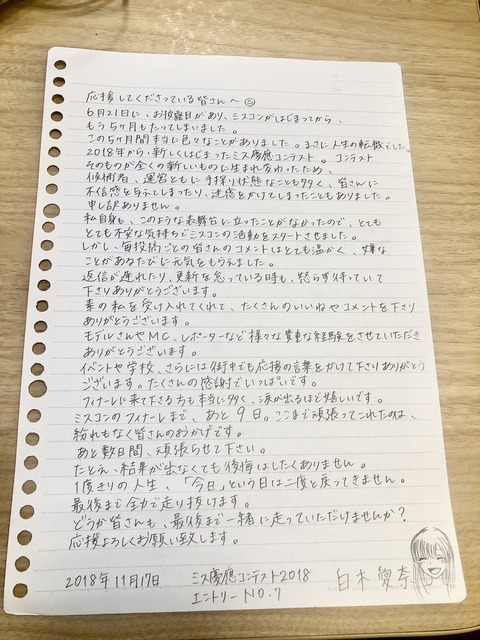 応援してくださっている皆さんへ☺
6月21日に、お披露目があり、ミスコンがはじまってから、
もう5ヶ月もたってしまいました。
この5ヶ月間本当に色々なことがありました。まさに人生の転機でした。
2018年から、新しくはじまったミス慶應コンテスト。コンテスト
そのものが全くの新しいものに生まれ変わったため、
候補者、運営ともに手探り状態なことも多く、皆さんに
不信感を与えてしまったり、迷惑をかけてしまったこともありました。
申し訳ありません。
私自身も、このような表舞台に立ったことがなかったので、とても
とても不安な気持ちでミスコンの活動をスタートさせました。
しかし、毎投稿ごとの皆さんのコメントはとても温かく、嫌な
ことがあるたびに元気をもらえました。
返信が遅れたり、更新を怠っている時も、怒らず待っていて
下さりありがとうございます。
素の私を受け入れてくれて、たくさんのいいねやコメントを下さり
ありがとうございます。
モデルさんやMC、レポーターなど様々な貴重な経験をさせていただき
ありがとうございます。
イベントや学校、さらには街中でも応援の言葉をかけて下さりありがとう
ございます。たくさんの感謝でいっぱいです。
フィナーレに来て下さる方も本当に多く、涙が出るほど嬉しいです。
ミスコンのフィナーレまで、あと9日。ここまで頑張ってこれたのは、
紛れもなく皆さんのおかげです。
あと数日間、頑張らせて下さい。
たとえ、結果が出なくても後悔はしたくありません。
1度きりの人生、「今日」という日は二度と戻ってきません。
最後まで全力で走り抜けます。
どうか皆さんも、最後まで一緒に走っていただけませんか？
応援よろしくお願い致します。
2018年11月17日 ミス慶應コンテスト2018
エントリーNO.7 白木愛奈